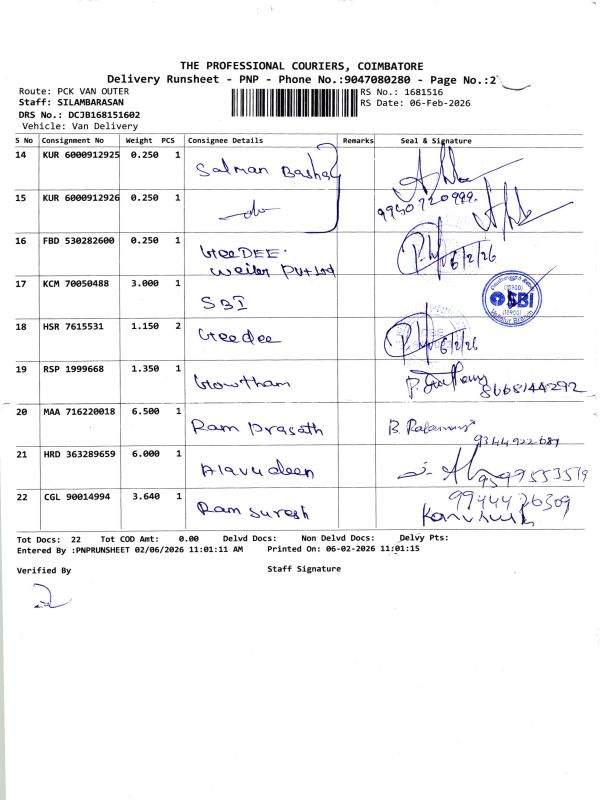 THE PROFESSIONAL COURIERS, COIMBATORE
Delivery Runsheet - PNP - Phone No.:9047080280 - Page No.:2
Route: PCK VAN OUTER
RS No.: 1681516
Staff: SILAMBARASAN
RS Date: 06-Feb-2026
DRS No.: DCJB168151602
Vehicle: Van Delivery
S No Consignment No Weight PCS Consignee Details Remarks Seal & Signature
14 KUR 6000912925 0.250 1 Salman Bashaq
15 KUR 6000912926 0.250 1 -do-
16 FBD 530282600 0.250 1 GeeDEE. Weiler Pvt Ltd 6/2/26
17 KCM 70050488 3.000 1 SBI SBI
18 HSR 7615531 1.150 2 Geedee 6/2/26
19 RSP 1999668 1.350 1 Gowtham 8668144292
20 MAA 716220018 6.500 1 Ram Prasath 9344922689
21 HRD 363289659 6.000 1 Alavudeen 9597553519
22 CGL 90014994 3.640 1 Ram Suresh 9944426309
Tot Docs: 22 Tot COD Amt: 0.00 Delvd Docs: Non Delvd Docs: Delvy Pts:
Entered By :PNPRUNSHEET 02/06/2026 11:01:11 AM Printed On: 06-02-2026 11:01:15
Verified By Staff Signature